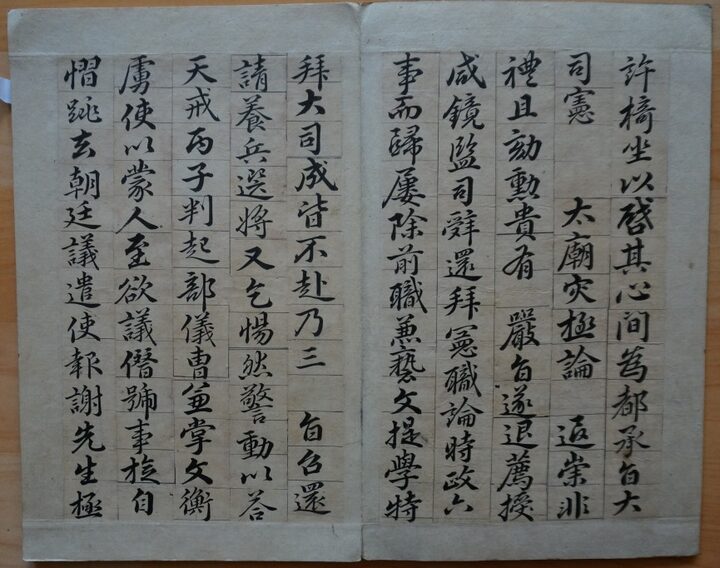 許椅坐以啓其心間為都承旨大
司憲 太廟灾極論 追崇非
禮且劾勳貴有 嚴旨遂退薦授
咸鏡監司辭還拜憲職論時政六
事而歸屢除前職兼藝文提學特
拜大司成皆不赴乃三 旨召還
請養兵選將又乞惕然警動以答
天戒丙子判起部儀曹兼掌文衡
虜使以蒙人至欲議僭號事旋自
慴跳去朝廷議遣使報謝先生極